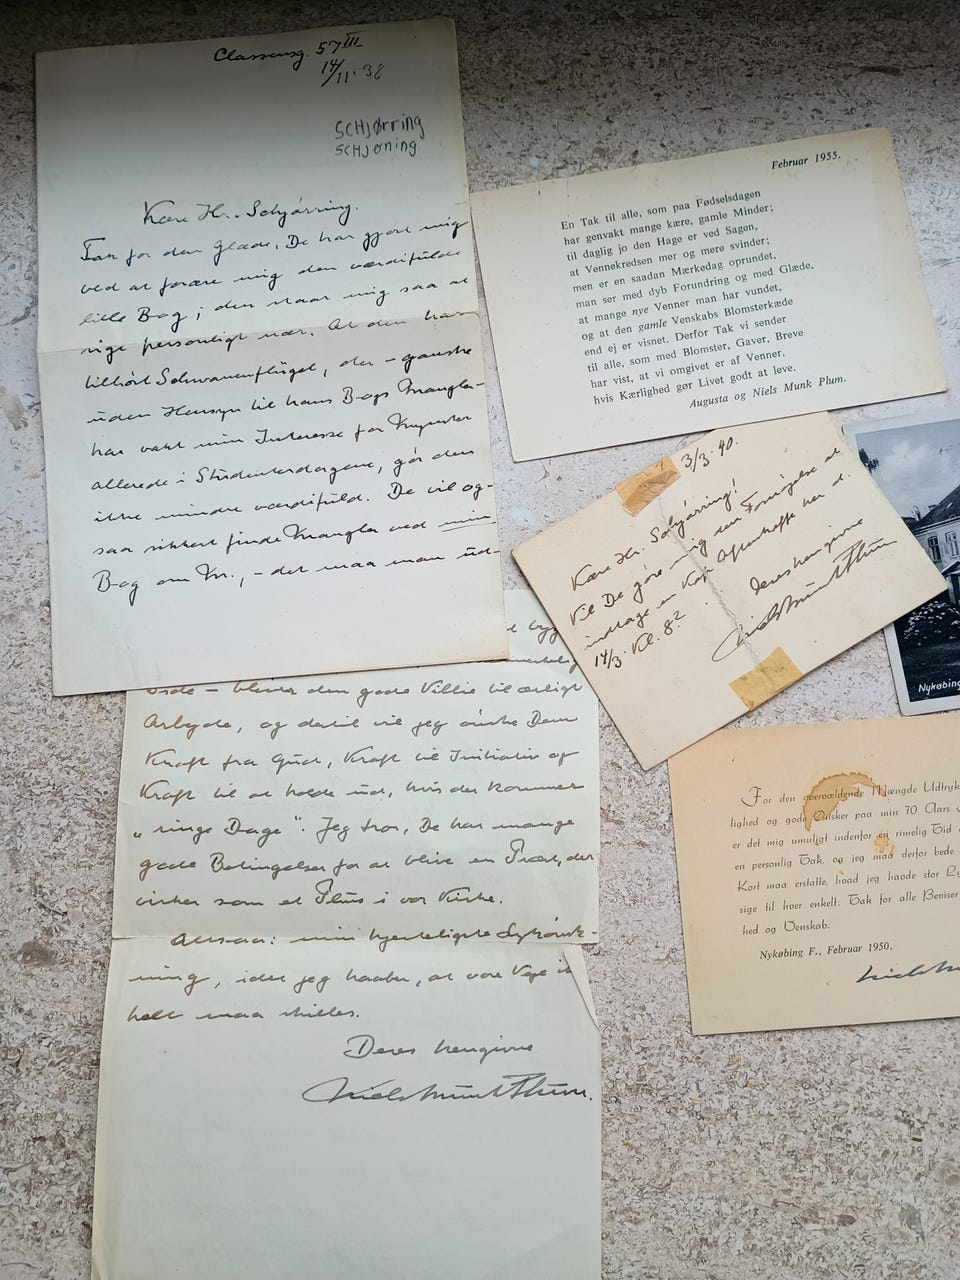 Classensg. 57 III
14/11·38
SCHJØrring
SCHJØNING
Kære Hr. Schjørring.
Tak for den Glæde, De har gjort mig
ved at forære mig den værdifulde
lille Bog; den staar mig saa at
sige personligt nær. At den har
tilhørt Schwanenflügel, der – ganske
uden Hensyn til hans Bogs Mangler –
har vakt min Interesse for Mynster
allerede i Studenterdagene, gør den
ikke mindre værdifuld. De vil og-
saa sikkert finde Mangler ved min
Bog om M., – det maa man ud-
Februar 1955.
En Tak til alle, som paa Fødselsdagen
har genvakt mange kære, gamle Minder;
til daglig jo den Hage er ved Sagen,
at Vennekredsen mer og mere svinder;
men er en saadan Mærkedag oprundet,
man ser med dyb Forundring og med Glæde,
at mange nye Venner man har vundet,
og at den gamle Venskabs Blomsterkæde
end ej er visnet. Derfor Tak vi sender
til alle, som med Blomster, Gaver, Breve
har vist, at vi omgivet er af Venner,
hvis Kærlighed gør Livet godt at leve.
Augusta og Niels Munk Plum.
3/3·40.
Kære Hr. Schjørring!
Vil De gøre mig den Fornøjelse at
indtage en Kop Aftenkaffe her d.
14/3· Kl. 8?
Deres hengivne
Niels Munk Plum
Nykøbing
Side – bliver den gode Villie til ærligt
Arbejde, og dertil vil jeg ønske Dem
Kraft fra Gud, Kraft til Initiativ og
Kraft til at holde ud, hvis der kommer
„ringe Dage“. Jeg tror, De har mange
gode Betingelser for at blive en Præst, der
virker som et Plus i vor Kirke.
Altsaa: min hjerteligste Lykønsk-
ning, idet jeg haaber, at vore Veje ik
helt maa skilles.
Deres hengivne
Niels Munk Plum.
For den overvældende Mængde Udtryk
lighed og gode Ønsker paa min 70 Aars
er det mig umuligt indenfor en rimelig Tid
en personlig Tak, og jeg maa derfor bede
Kort maa erstatte, hvad jeg havde stor Ly
sige til hver enkelt: Tak for alle Beviser
hed og Venskab.
Nykøbing F., Februar 1950.